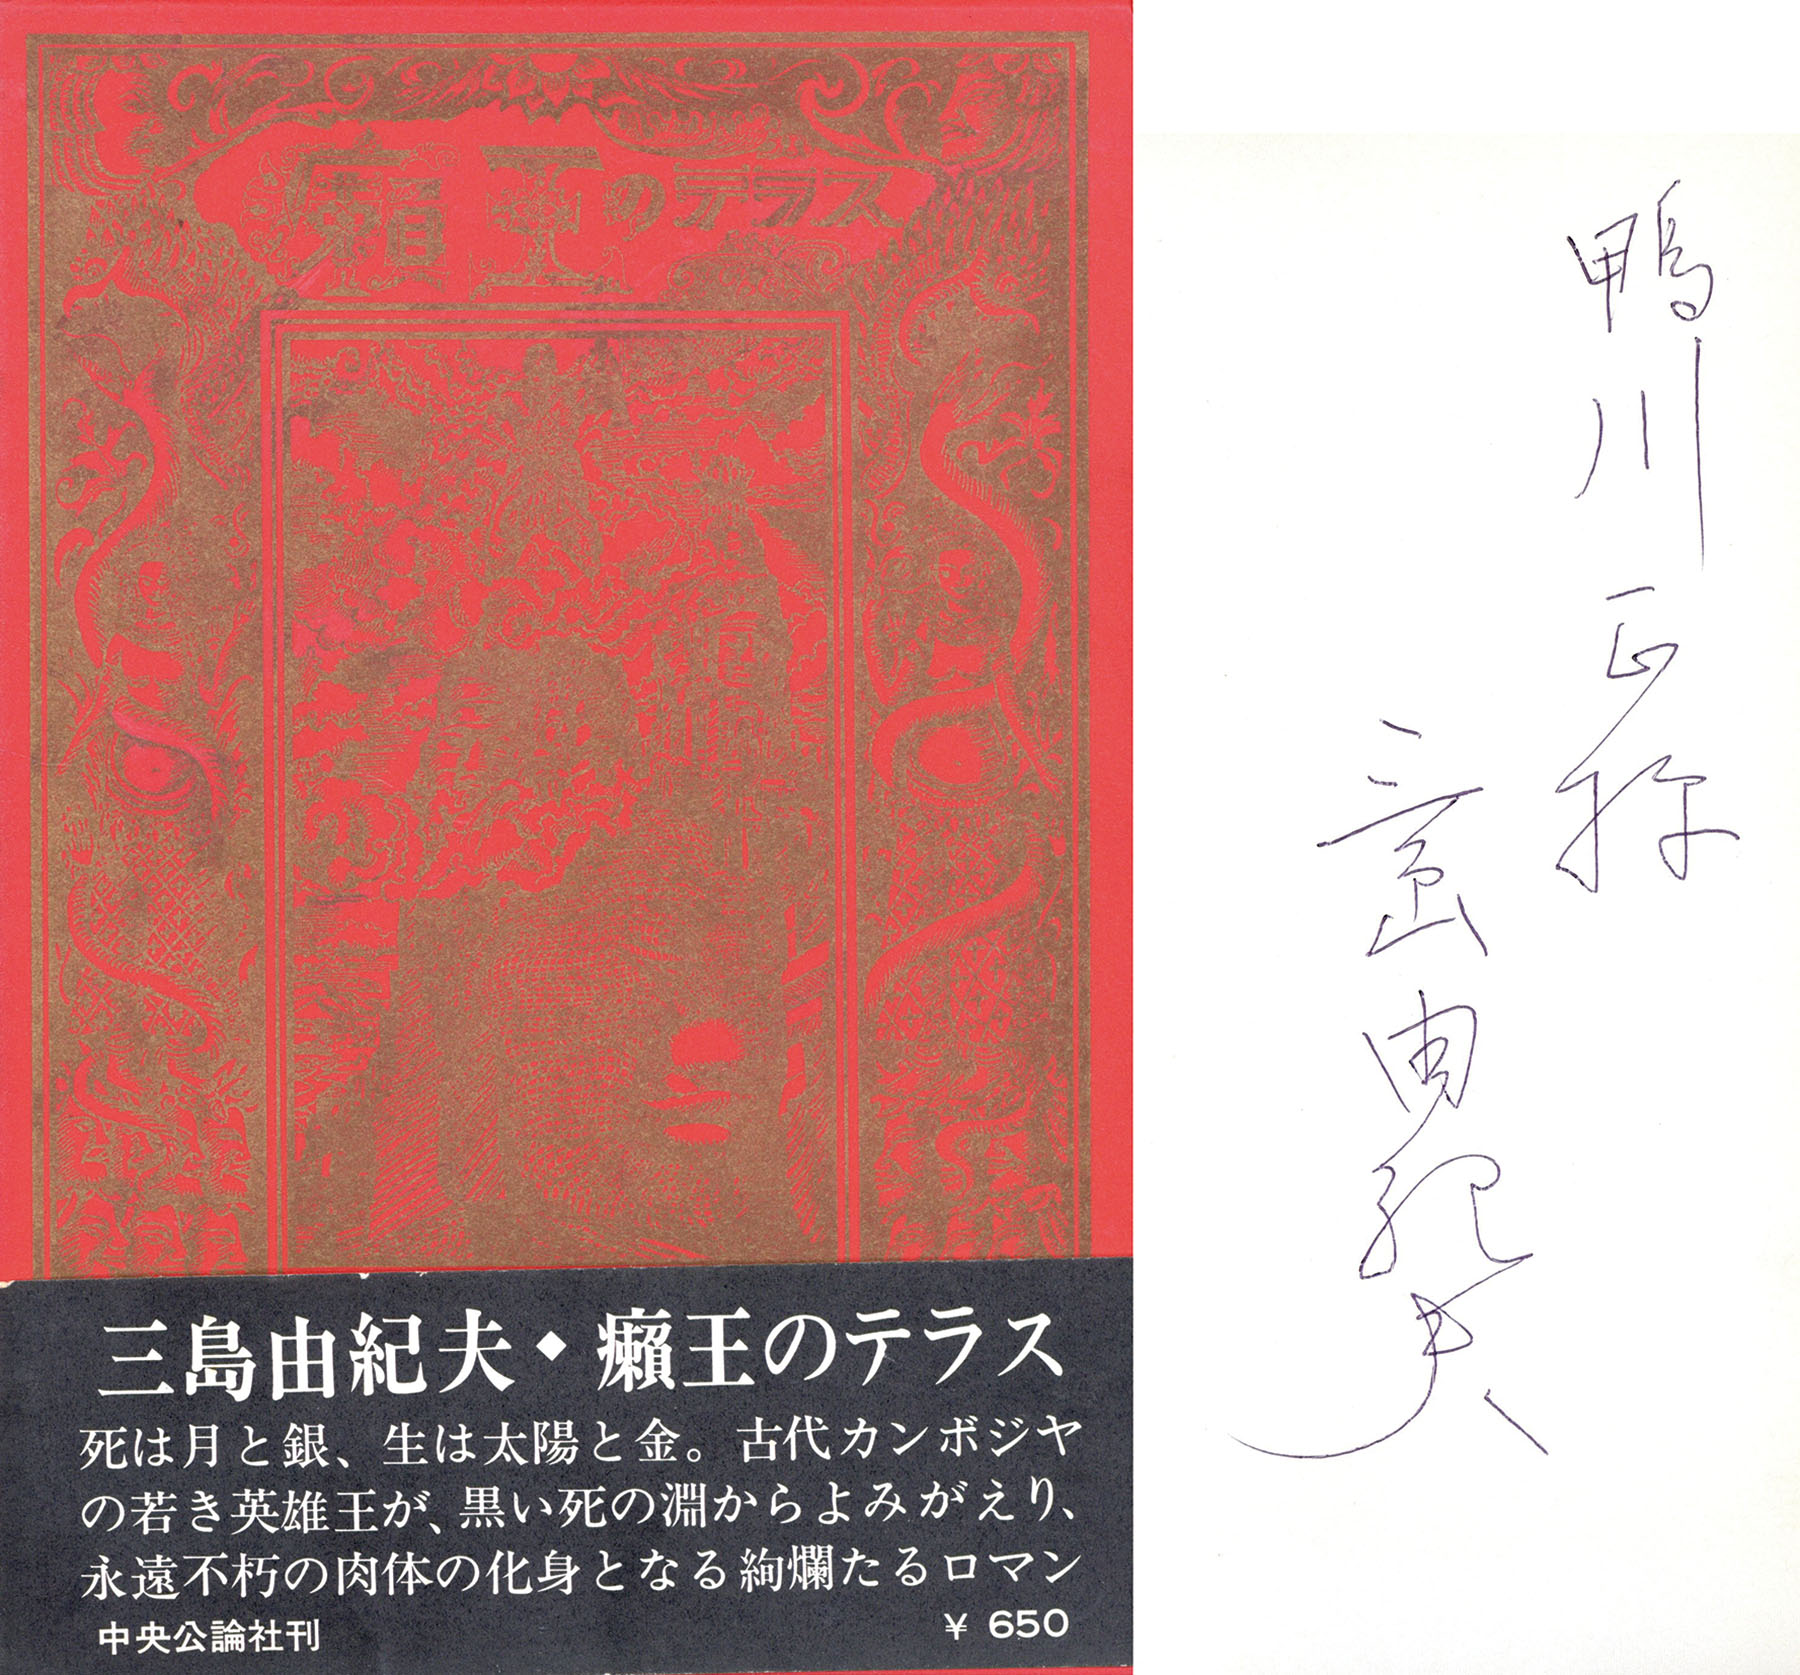 癩王のテラス
三島由紀夫◆癩王のテラス
死は月と銀、生は太陽と金。古代カンボジヤ
の若き英雄王が、黒い死の淵からよみがえり、
永遠不朽の肉体の化身となる絢爛たるロマン
中央公論社刊
¥ 650
鴨川正様
三島由紀夫